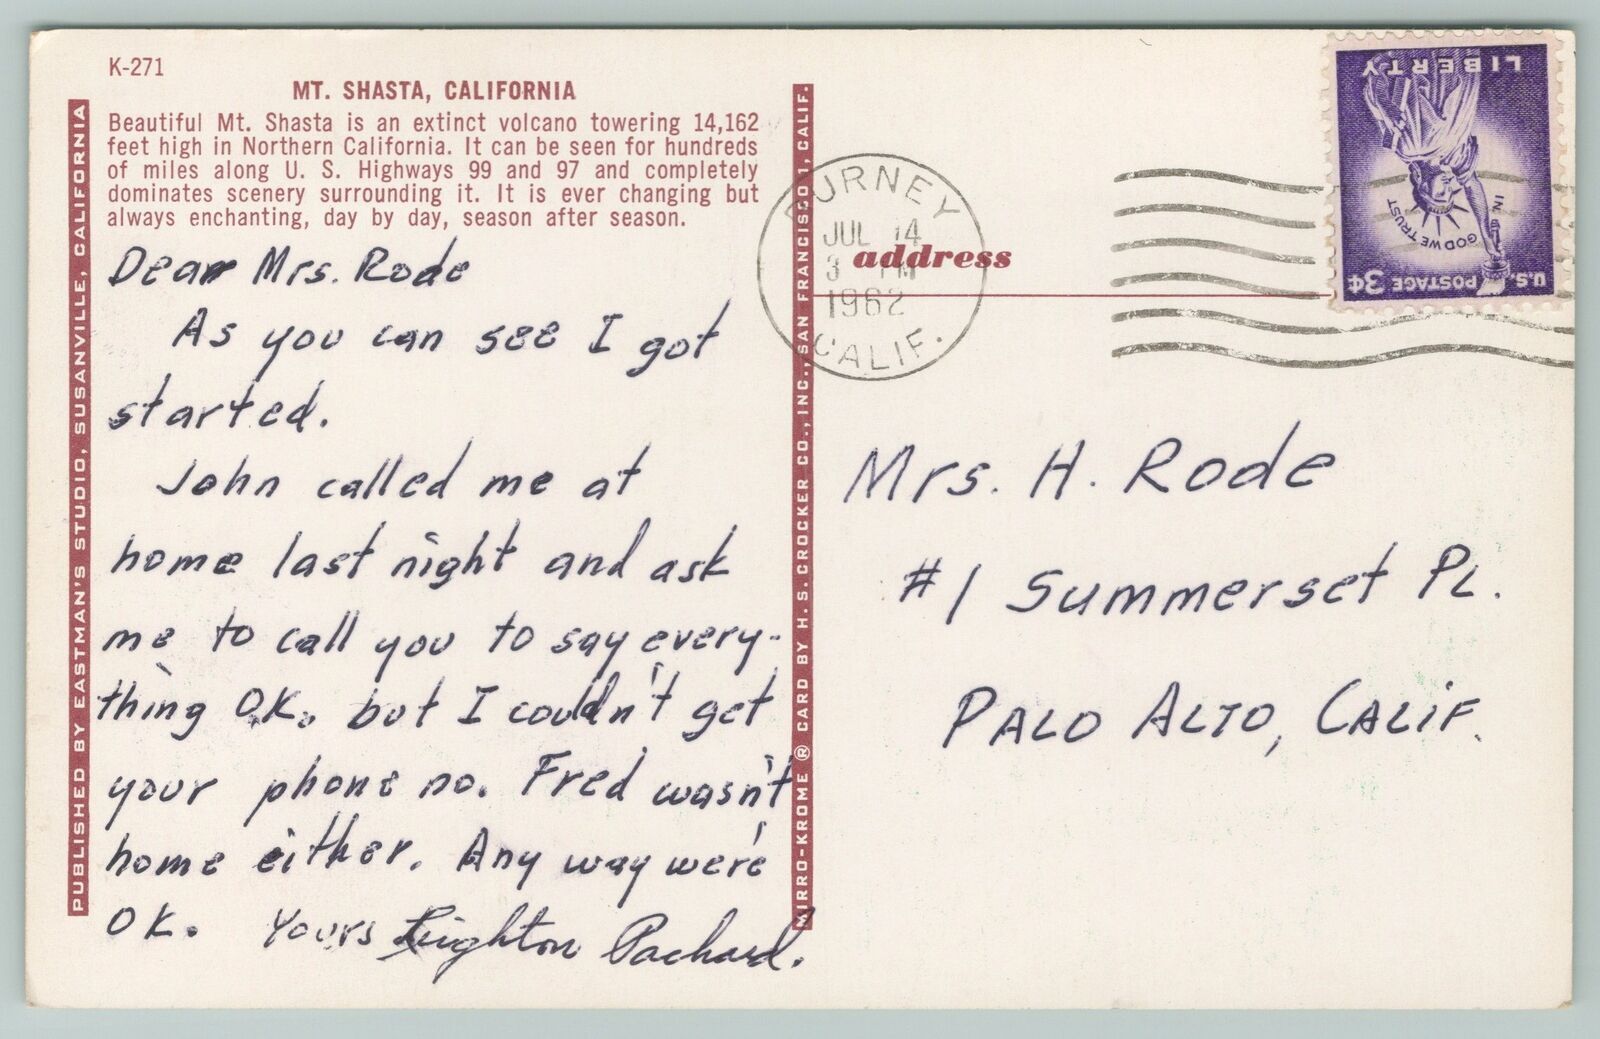 K-271
MT. SHASTA, CALIFORNIA
Beautiful Mt. Shasta is an extinct volcano towering 14,162
feet high in Northern California. It can be seen for hundreds
of miles along U. S. Highways 99 and 97 and completely
dominates scenery surrounding it. It is ever changing but
always enchanting, day by day, season after season.
Dear Mrs. Rode
As you can see I got
started.
John called me at
home last night and ask
me to call you to say every-
thing O.K. but I couldn't get
your phone no. Fred wasn't
home either. Any way we're
OK. Yours Leighton Pachard.
PUBLISHED BY EASTMAN'S STUDIO, SUSANVILLE, CALIFORNIA
MIRRO-KROME ® CARD BY H. S. CROCKER CO., INC., SAN FRANCISCO 1, CALIF.
BURNEY
JUL 14
3 PM
1962
CALIF.
address
LIBERTY
IN GOD WE TRUST
U.S. POSTAGE 3¢
Mrs. H. Rode
#1 Summerset PL.
PALO ALTO, CALIF.